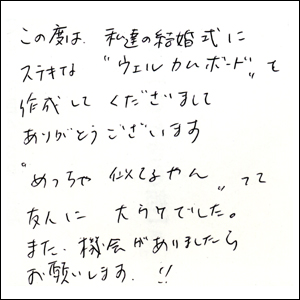 この度は、私達の結婚式に
ステキな "ウェルカムボード" を
作成して くださいまして
ありがとうございます
"めっちゃ 似てるやん" って
友人に 大ウケでした。
また、機会がありましたら
お願いします、!!